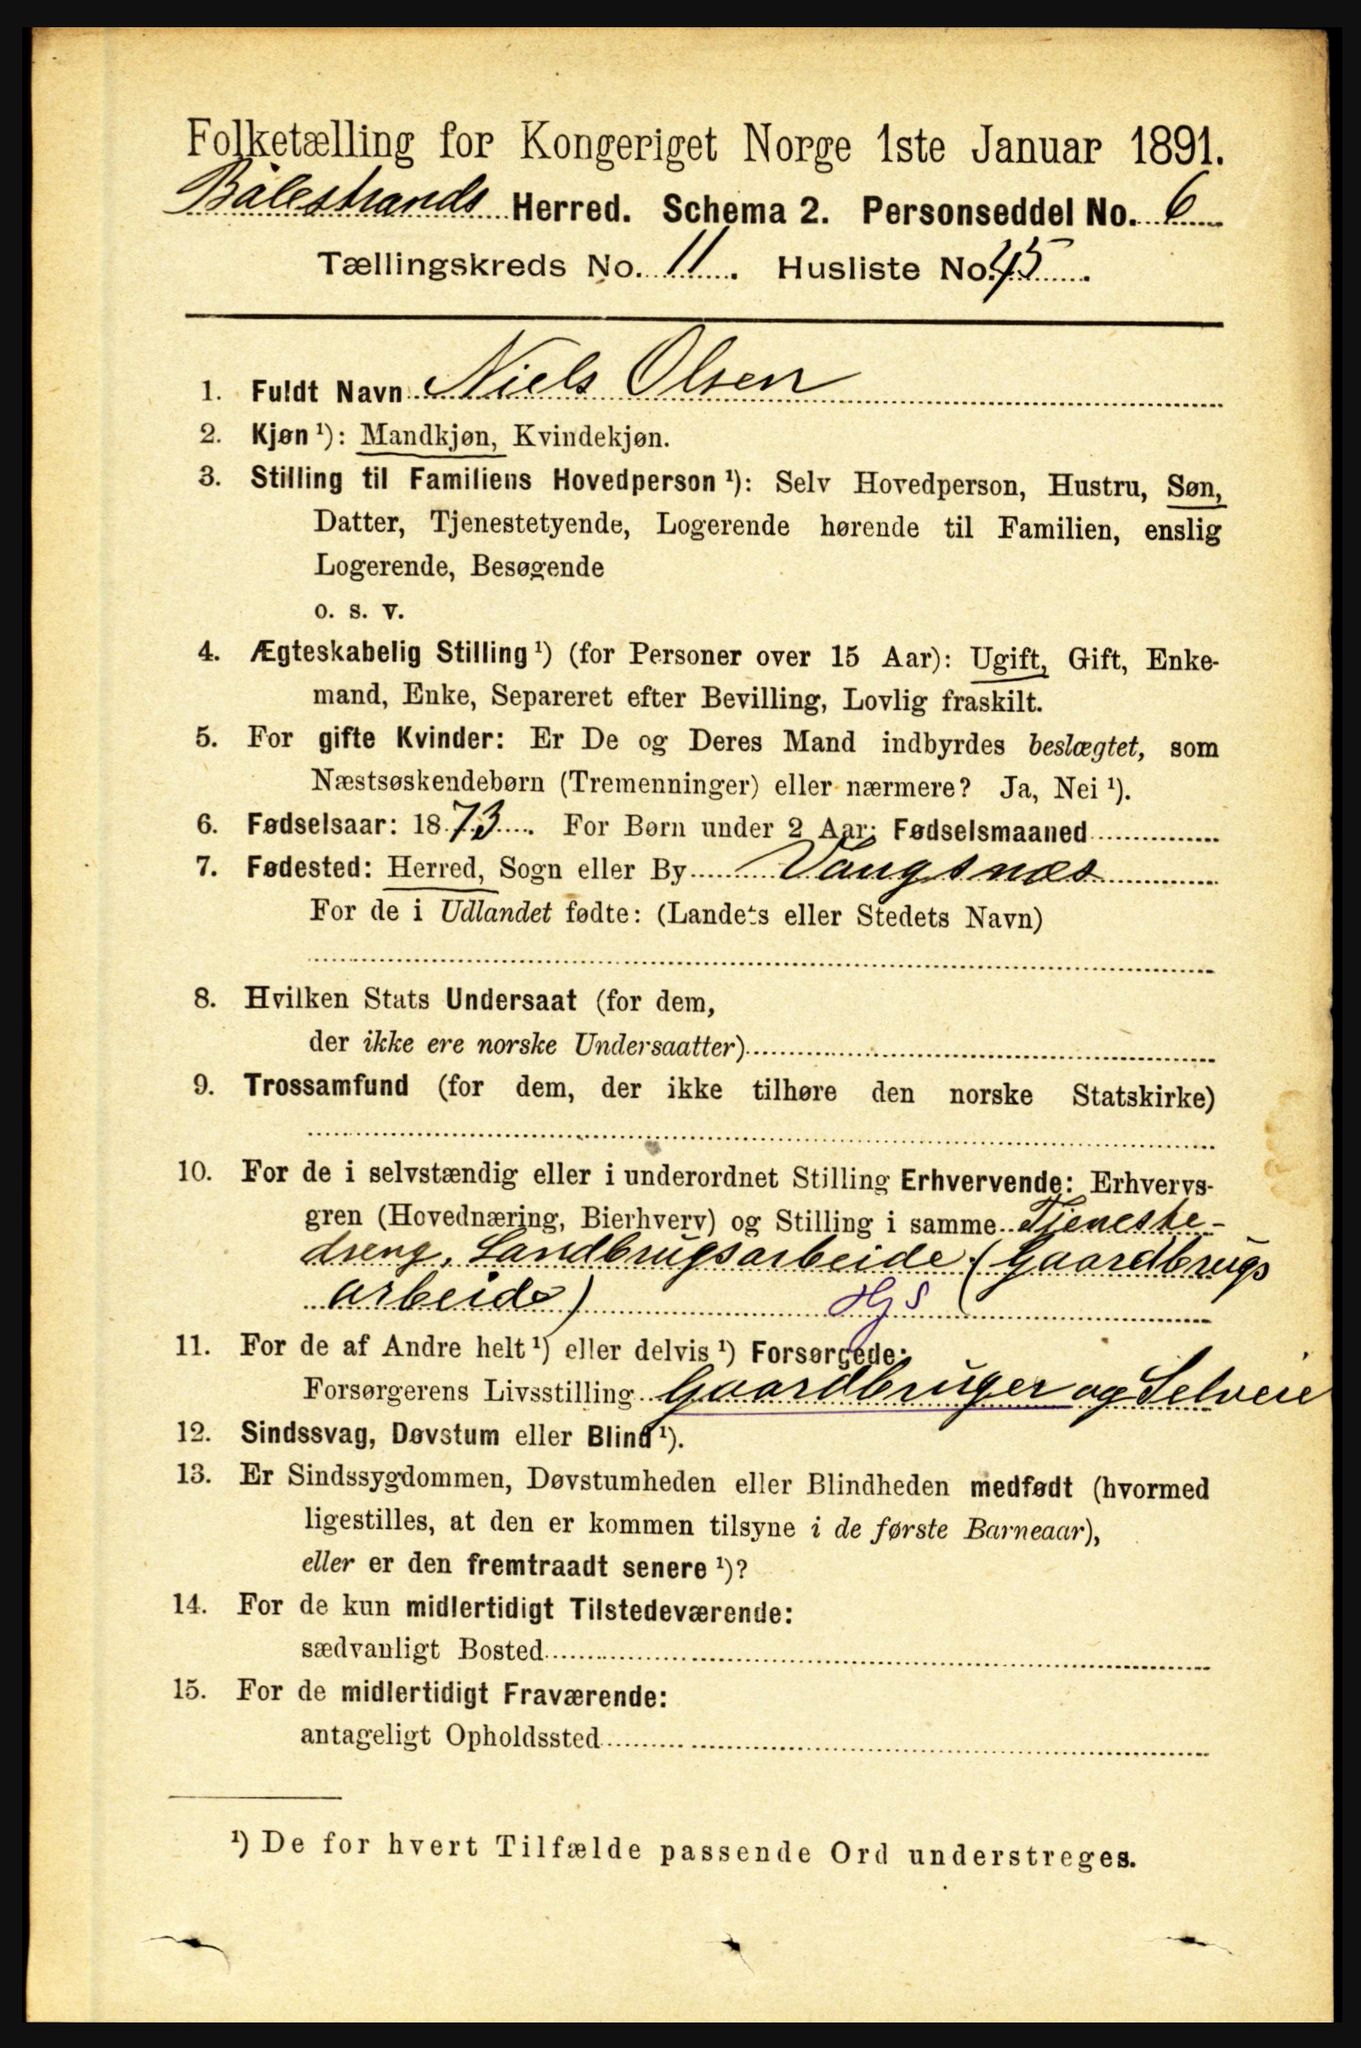 Folketælling for Kongeriget Norge 1ste Januar 1891.
Balestrands Herred. Schema 2. Personseddel No. 6
Tællingskreds No. 11. Husliste No. 45.
1. Fuldt Navn Niels Olsen
2. Kjøn ¹): Mandkjøn, Kvindekjøn.
3. Stilling til Familiens Hovedperson ¹): Selv Hovedperson, Hustru, Søn,
Datter, Tjenestetyende, Logerende hørende til Familien, enslig
Logerende, Besøgende
o. s. v.
4. Ægteskabelig Stilling ¹) (for Personer over 15 Aar): Ugift, Gift, Enke-
mand, Enke, Separeret efter Bevilling, Lovlig fraskilt.
5. For gifte Kvinder: Er De og Deres Mand indbyrdes beslægtet, som
Næstsøskendebørn (Tremenninger) eller nærmere? Ja, Nei ¹).
6. Fødselsaar: 1873. For Børn under 2 Aar: Fødselsmaaned
7. Fødested: Herred, Sogn eller By Vangsnæs
For de i Udlandet fødte: (Landets eller Stedets Navn)
8. Hvilken Stats Undersaat (for dem,
der ikke ere norske Undersaatter)
9. Trossamfund (for dem, der ikke tilhøre den norske Statskirke)
10. For de i selvstændig eller i underordnet Stilling Erhvervende: Erhvervs-
gren (Hovednæring, Bierhverv) og Stilling i samme Tjeneste-
dreng, Landbrugsarbeide (Gaardbrugs
arbeide) HjS
11. For de af Andre helt ¹) eller delvis ¹) Forsørgede:
Forsørgerens Livsstilling Gaardbruger og Selveie
12. Sindssvag, Døvstum eller Blind ¹).
13. Er Sindssygdommen, Døvstumheden eller Blindheden medfødt (hvormed
ligestilles, at den er kommen tilsyne i de første Barneaar),
eller er den fremtraadt senere ¹)?
14. For de kun midlertidigt Tilstedeværende:
sædvanligt Bosted
15. For de midlertidigt Fraværende:
antageligt Opholdssted
¹) De for hvert Tilfælde passende Ord understreges.